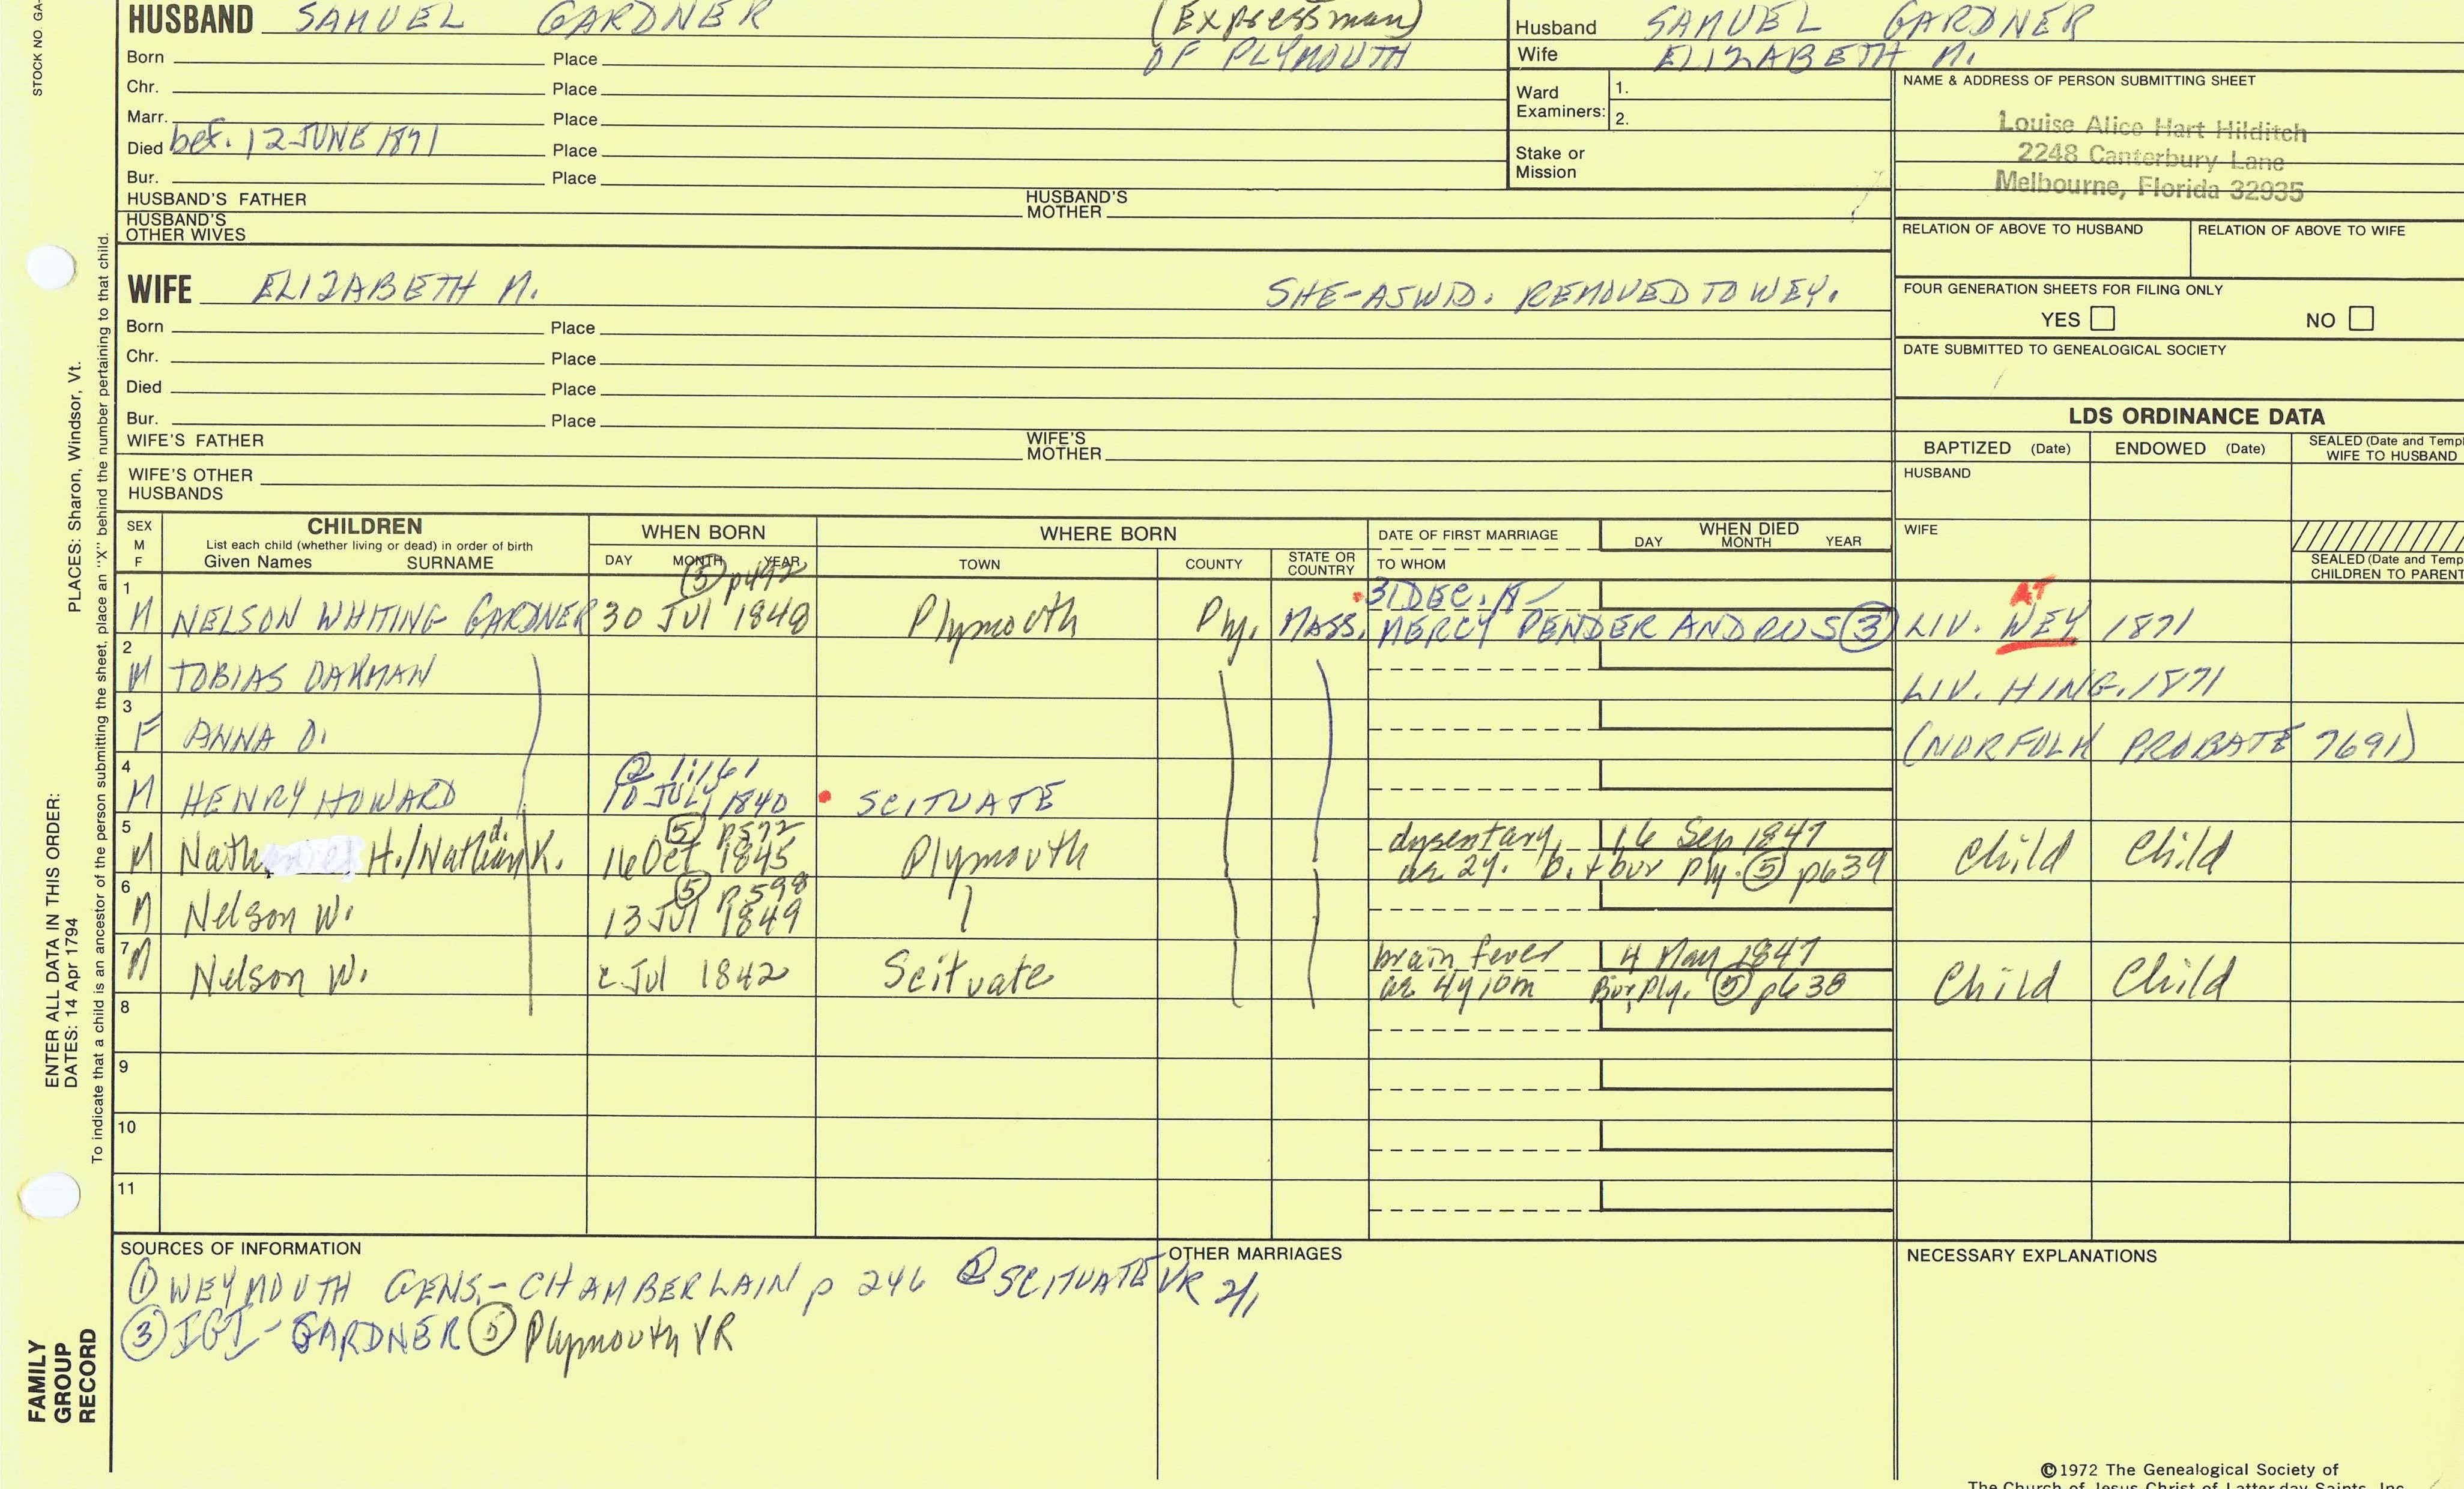 STOCK NO. GA-
HUSBAND SAMUEL GARDNER (Expressman)
OF PLYMOUTH
Born Place
Chr. Place
Marr. Place
Died bef. 12 JUNE 1871 Place
Bur. Place
HUSBAND'S FATHER HUSBAND'S MOTHER
HUSBAND'S OTHER WIVES
Husband SAMUEL GARDNER
Wife ELIZABETH M.
Ward Examiners: 1.
2.
Stake or Mission
NAME & ADDRESS OF PERSON SUBMITTING SHEET
Louise Alice Hart Hilditch
2248 Canterbury Lane
Melbourne, Florida 32935
RELATION OF ABOVE TO HUSBAND RELATION OF ABOVE TO WIFE
FOUR GENERATION SHEETS FOR FILING ONLY
YES NO
DATE SUBMITTED TO GENEALOGICAL SOCIETY
WIFE ELIZABETH M. SHE-ASWID. REMOVED TO WEY.
Born Place
Chr. Place
Died Place
Bur. Place
WIFE'S FATHER WIFE'S MOTHER
WIFE'S OTHER HUSBANDS
LDS ORDINANCE DATA
BAPTIZED (Date) ENDOWED (Date) SEALED (Date and Templ
WIFE TO HUSBAND
HUSBAND
WIFE
SEALED (Date and Temp
CHILDREN TO PARENT
SEX M F
CHILDREN
List each child (whether living or dead) in order of birth
Given Names SURNAME
WHEN BORN
DAY MONTH YEAR
WHERE BORN
TOWN COUNTY STATE OR COUNTRY
DATE OF FIRST MARRIAGE
TO WHOM
WHEN DIED
DAY MONTH YEAR
(5) p492
1 M NELSON WHITING GARDNER 30 Jul 1848 Plymouth Ply. MASS. 31 DEC. 18—
MERCY PENDER ANDROS (3) LIV. AT WEY 1871
2 M TOBIAS OAKMAN LIV. HING. 1871
3 F ANNA O. (NORFOLK PROBATE 7691)
4 M HENRY HOWARD (2) 1:161
10 JULY 1840 SCITUATE
5 M H./Nathan K. (5) p572
16 Oct 1845 Plymouth dysentary, 16 Sep 1847
ae 2y. b. + bur Ply. (5) p639 Child Child
6 M Nelson W. (5) p598
13 Jul 1849
7 M Nelson W. 2 Jul 1842 Scituate brain fever 4 May 1847
ae 4y 10m Bur Ply. (5) p638 Child Child
8
9
10
11
SOURCES OF INFORMATION
(1) WEYMOUTH GENS.-CHAMBERLAIN p 246 (2) SCITUATE VR 2/1
(3) IGI - GARDNER (5) Plymouth VR
OTHER MARRIAGES
NECESSARY EXPLANATIONS
©1972 The Genealogical Society of
The Church of Jesus Christ of Latter-day Saints, Inc.
PLACES: Sharon, Windsor, Vt.
ENTER ALL DATA IN THIS ORDER:
DATES: 14 Apr 1794
To indicate that a child is an ancestor of the person submitting the sheet, place an "X" behind the number pertaining to that child.
FAMILY
GROUP
RECORD